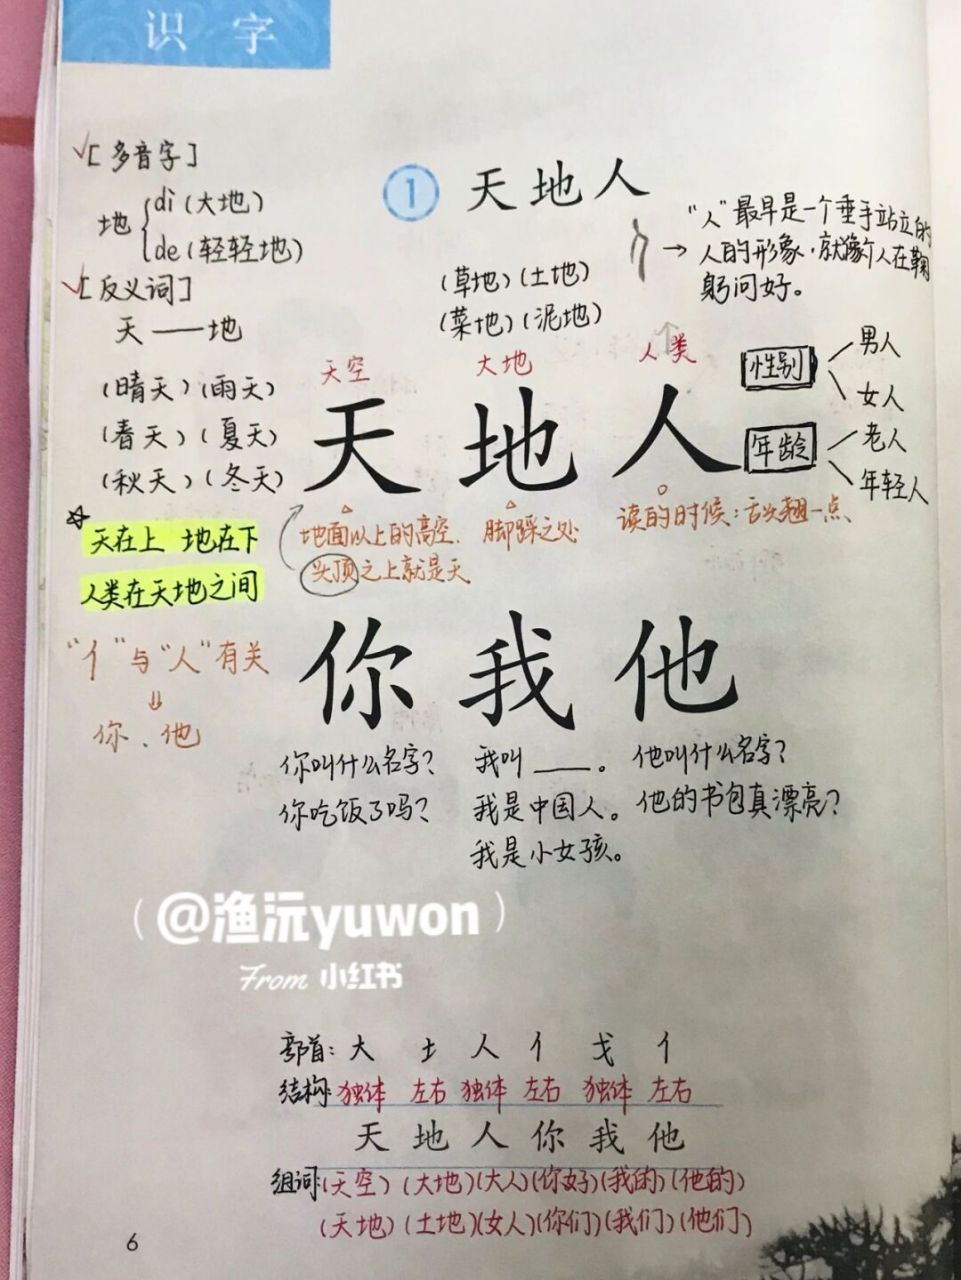 识 字
[多音字]
地 dì(大地)
de(轻轻地)
① 天地人
"人"最早是一个垂手站立的
人的形象,就像个人在鞠
躬问好。
(草地)(土地)
(菜地)(泥地)
[反义词]
天——地
(晴天)(雨天)
(春天)(夏天)
(秋天)(冬天)
天空 大地 人类
天 地 人
性别 男人
女人
年龄 老人
年轻人
地面以上的高空. 脚踩之处 读的时候:舌头翘一点
头顶之上就是天
天在上 地在下
人类在天地之间
"亻"与"人"有关
⇓
你、他
你 我 他
你叫什么名字? 我叫____。 他叫什么名字?
你吃饭了吗? 我是中国人。 他的书包真漂亮?
我是小女孩。
(@渔沅yuwon)
From 小红书
部首: 大 土 人 亻 戈 亻
结构: 独体 左右 独体 左右 独体 左右
天 地 人 你 我 他
组词:(天空)(大地)(大人)(你好)(我的)(他的)
(天地)(土地)(女人)(你们)(我们)(他们)
6